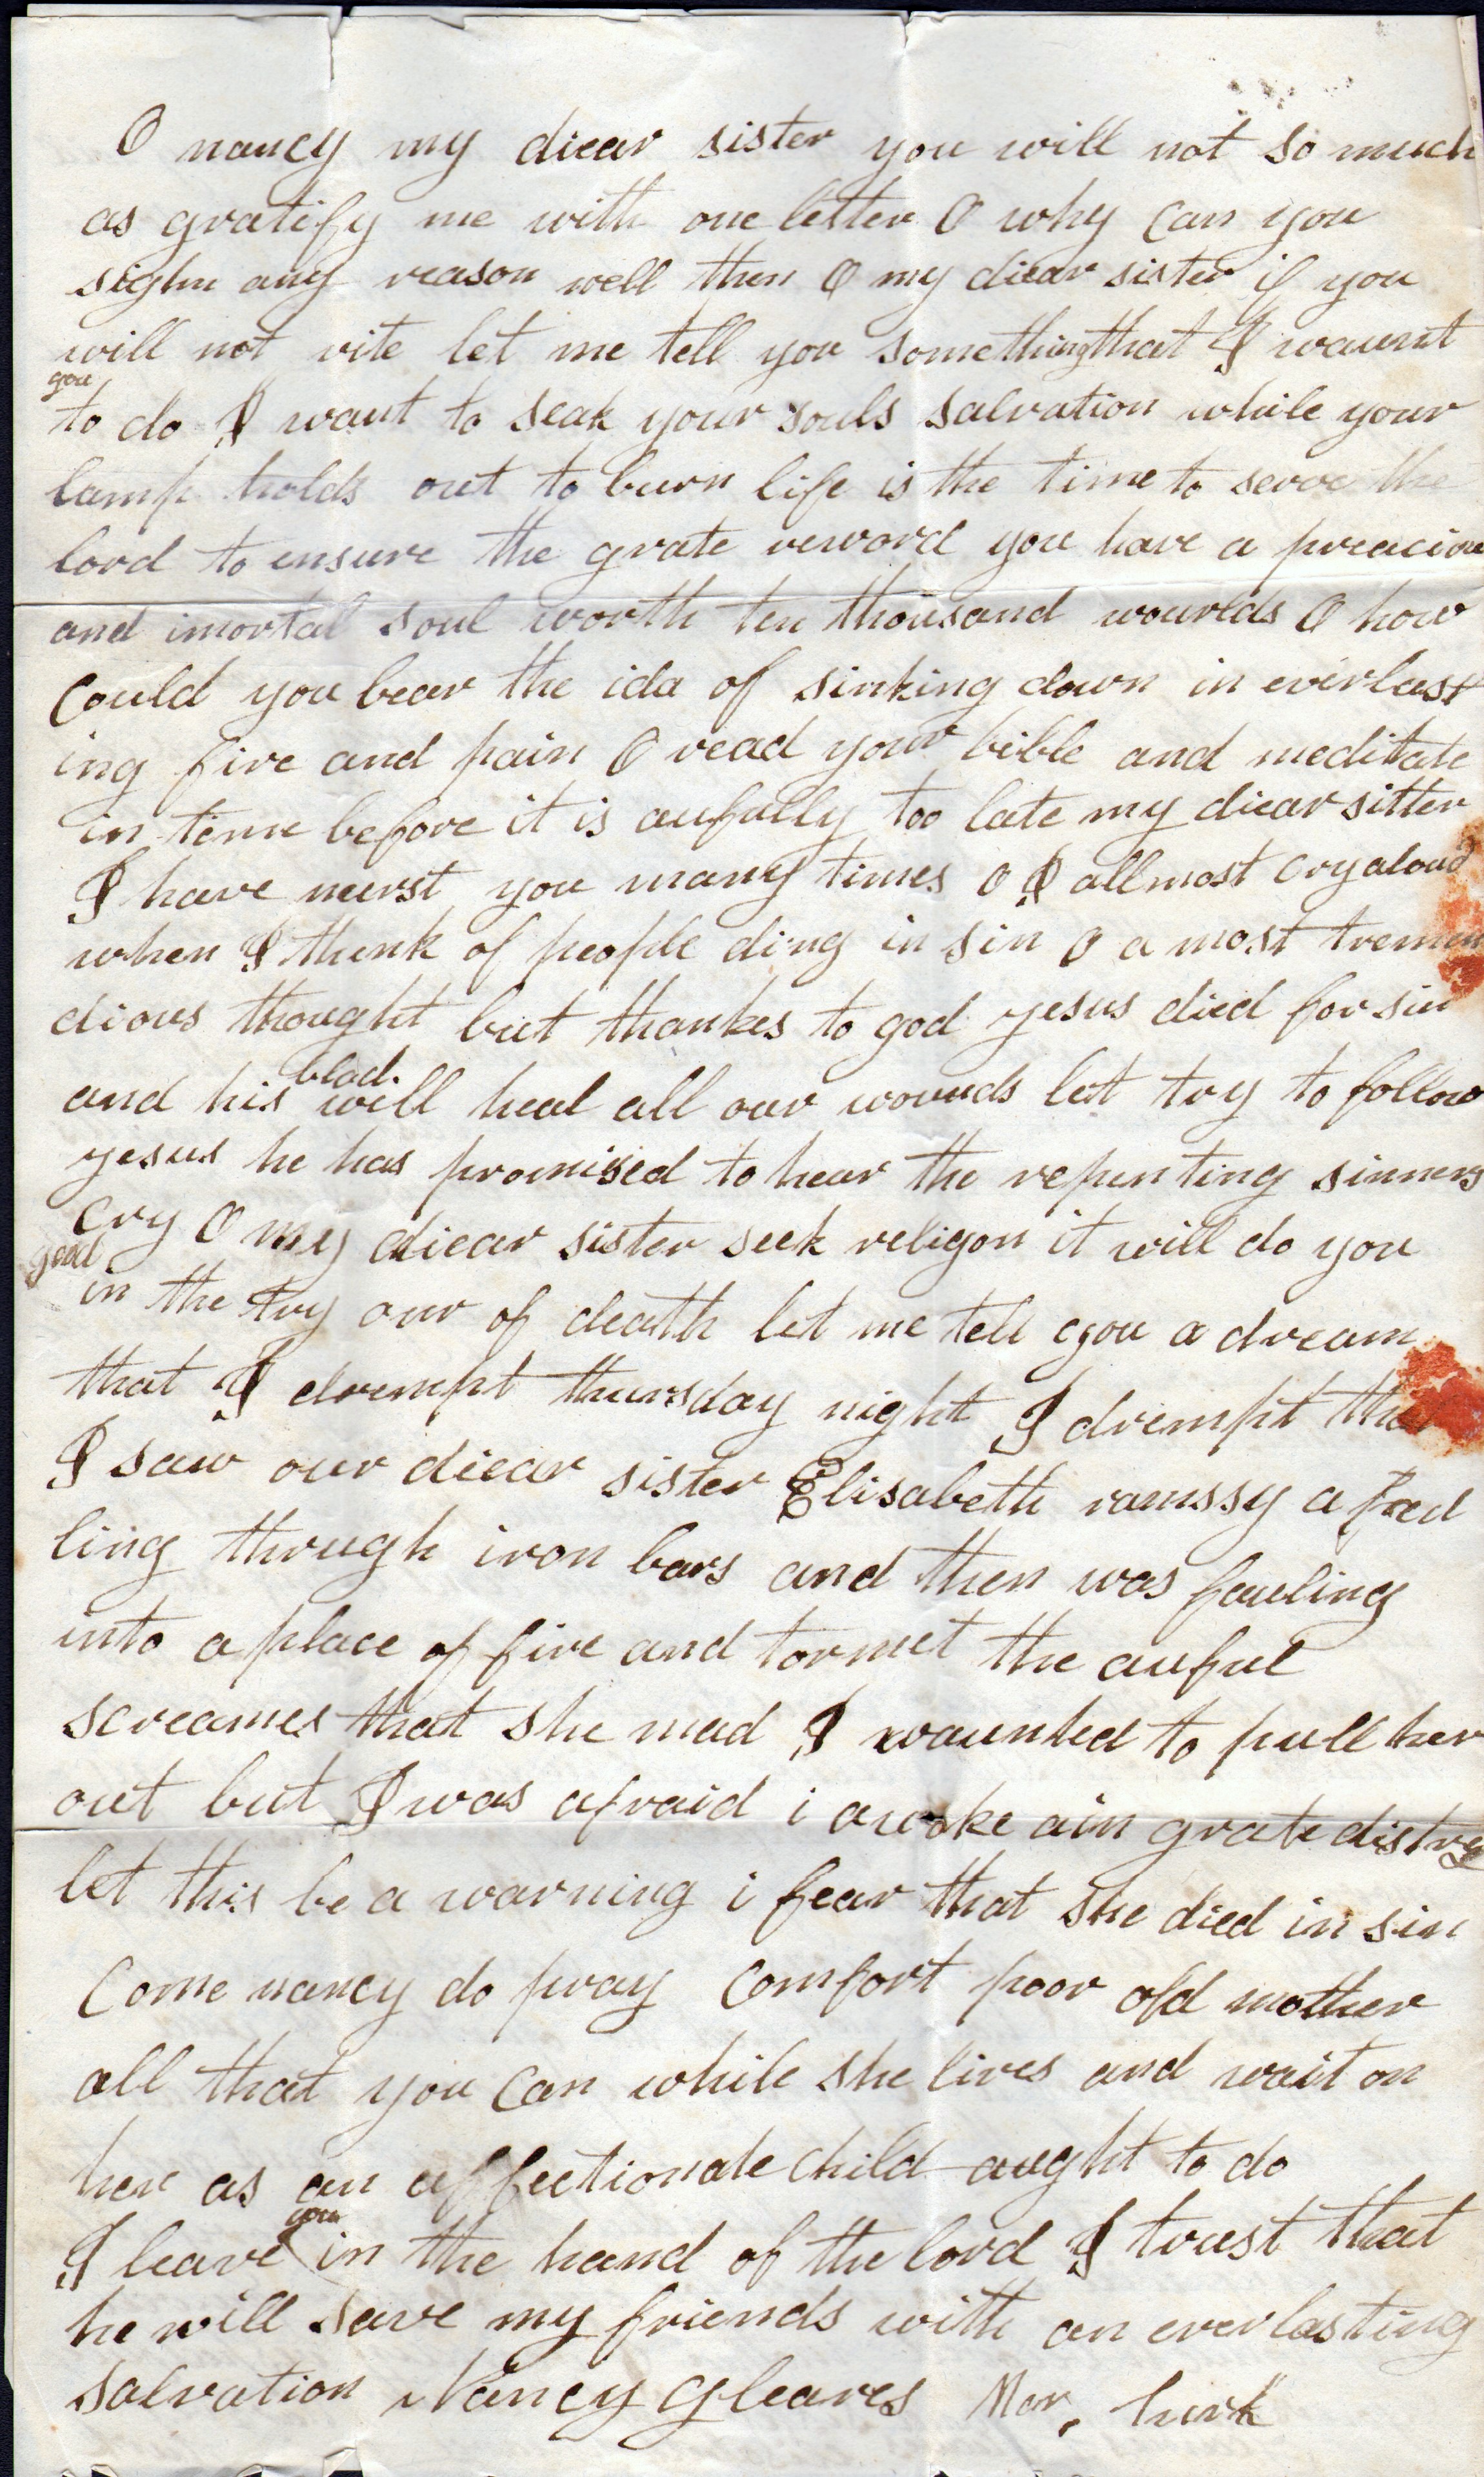 O nancy my diear sister you will not so much
as gratify me with one letter O why can you
sighn any reason well then O my diear sister if you
will not rite let me tell you somethingthat I waunt
you
to do I want to seak your souls salvation while your
lamp holds out to burn life is the time to serve the
lord to ensure the grate reword you have a preaciou
and imortal soul worth ten thousand wourlds O how
could you bear the ida of sinking down in everlast
ing fire and pain O read your bible and meditate
in time before it is aufully too late my diear sitter
I have nurst you many times O I allmost cry aloud
when I think of people ding in sin O a most tremen
dious thought but thankes to god yesus died for sin
blod.
and his will heal all our wounds let try to follow
yesus he has promised to hear the repenting sinners
cry O my diear sister seek religon it will do you
good
in the try our of death let me tell you a dream
that I drempt thursday night I drempt tha
I saw our diear sister Elisabeth ramssy a
ling through iron bars and then was fauling
into a place of fire and tormet the auful
screames that she mad I waunted to pull her
out but I was afraid i awoke ain grate distre
let this be a warning i fear that she died in sin
Come nancy do pray comfort poor old mother
all that you can while she lives and wait on
her as an affectionate child aught to do
you
I leave in the hand of the lord I trust that
he will save my friends with an everlasting
salvation Nancy Gleaves Mar, turk